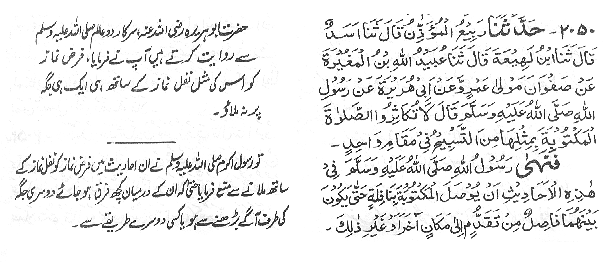 ۲۰۵۰ - حَدَّثَنَا رَبِيعُ الْمُؤَذِّنُ قَالَ ثَنَا اَسَدٌ
قَالَ ثَنَا ابْنُ لَهِيْعَةَ قَالَ ثَنَا عُبَيْدُ اللهِ بْنُ الْمُغِيْرَةِ
عَنْ صَفْوَانَ مَوْلٰى عَمْرٍو عَنْ اَبِىْ هُرَيْرَةَ عَنْ رَسُوْلِ
اللهِ صَلَّى اللهُ عَلَيْهِ وَسَلَّمَ قَالَ لَا تُكَاثِرُوا الصَّلٰوةَ
الْمَكْتُوْبَةَ بِمِثْلِهَا مِنَ التَّسْبِيْحِ فِىْ مَقَامٍ وَاحِدٍ -
فَنَهٰى رَسُوْلُ اللهِ صَلَّى اللهُ عَلَيْهِ وَسَلَّمَ فِىْ
هٰذِهِ الْاَحَادِيْثِ اَنْ يُوْصَلَ الْمَكْتُوْبَةُ بِنَافِلَةٍ حَتّٰى يَكُوْنَ
بَيْنَهُمَا فَاصِلٌ مِنْ تَقَدُّمٍ اِلٰى مَكَانٍ اٰخَرَ اَوْ غَيْرِ ذٰلِكَ -
حضرت ابوہریرہ رضی اللہ عنہ، سرکار دو عالم صلی اللہ علیہ وسلم
سے روایت کرتے ہیں آپ نے فرمایا، فرض نماز
کو اس کی مثل نفل نماز کے ساتھ ہی ایک ہی جگہ
پر نہ ملاؤ۔
تو رسول اکرم صلی اللہ علیہ وسلم نے ان احادیث میں فرض نماز کو نفل نماز کے
ساتھ ملانے سے منع فرمایا حتیٰ کہ ان کے درمیان کچھ فرق ہو جائے دوسری جگہ
کی طرف آگے بڑھنے سے ہو یا کسی دوسرے طریقے سے۔